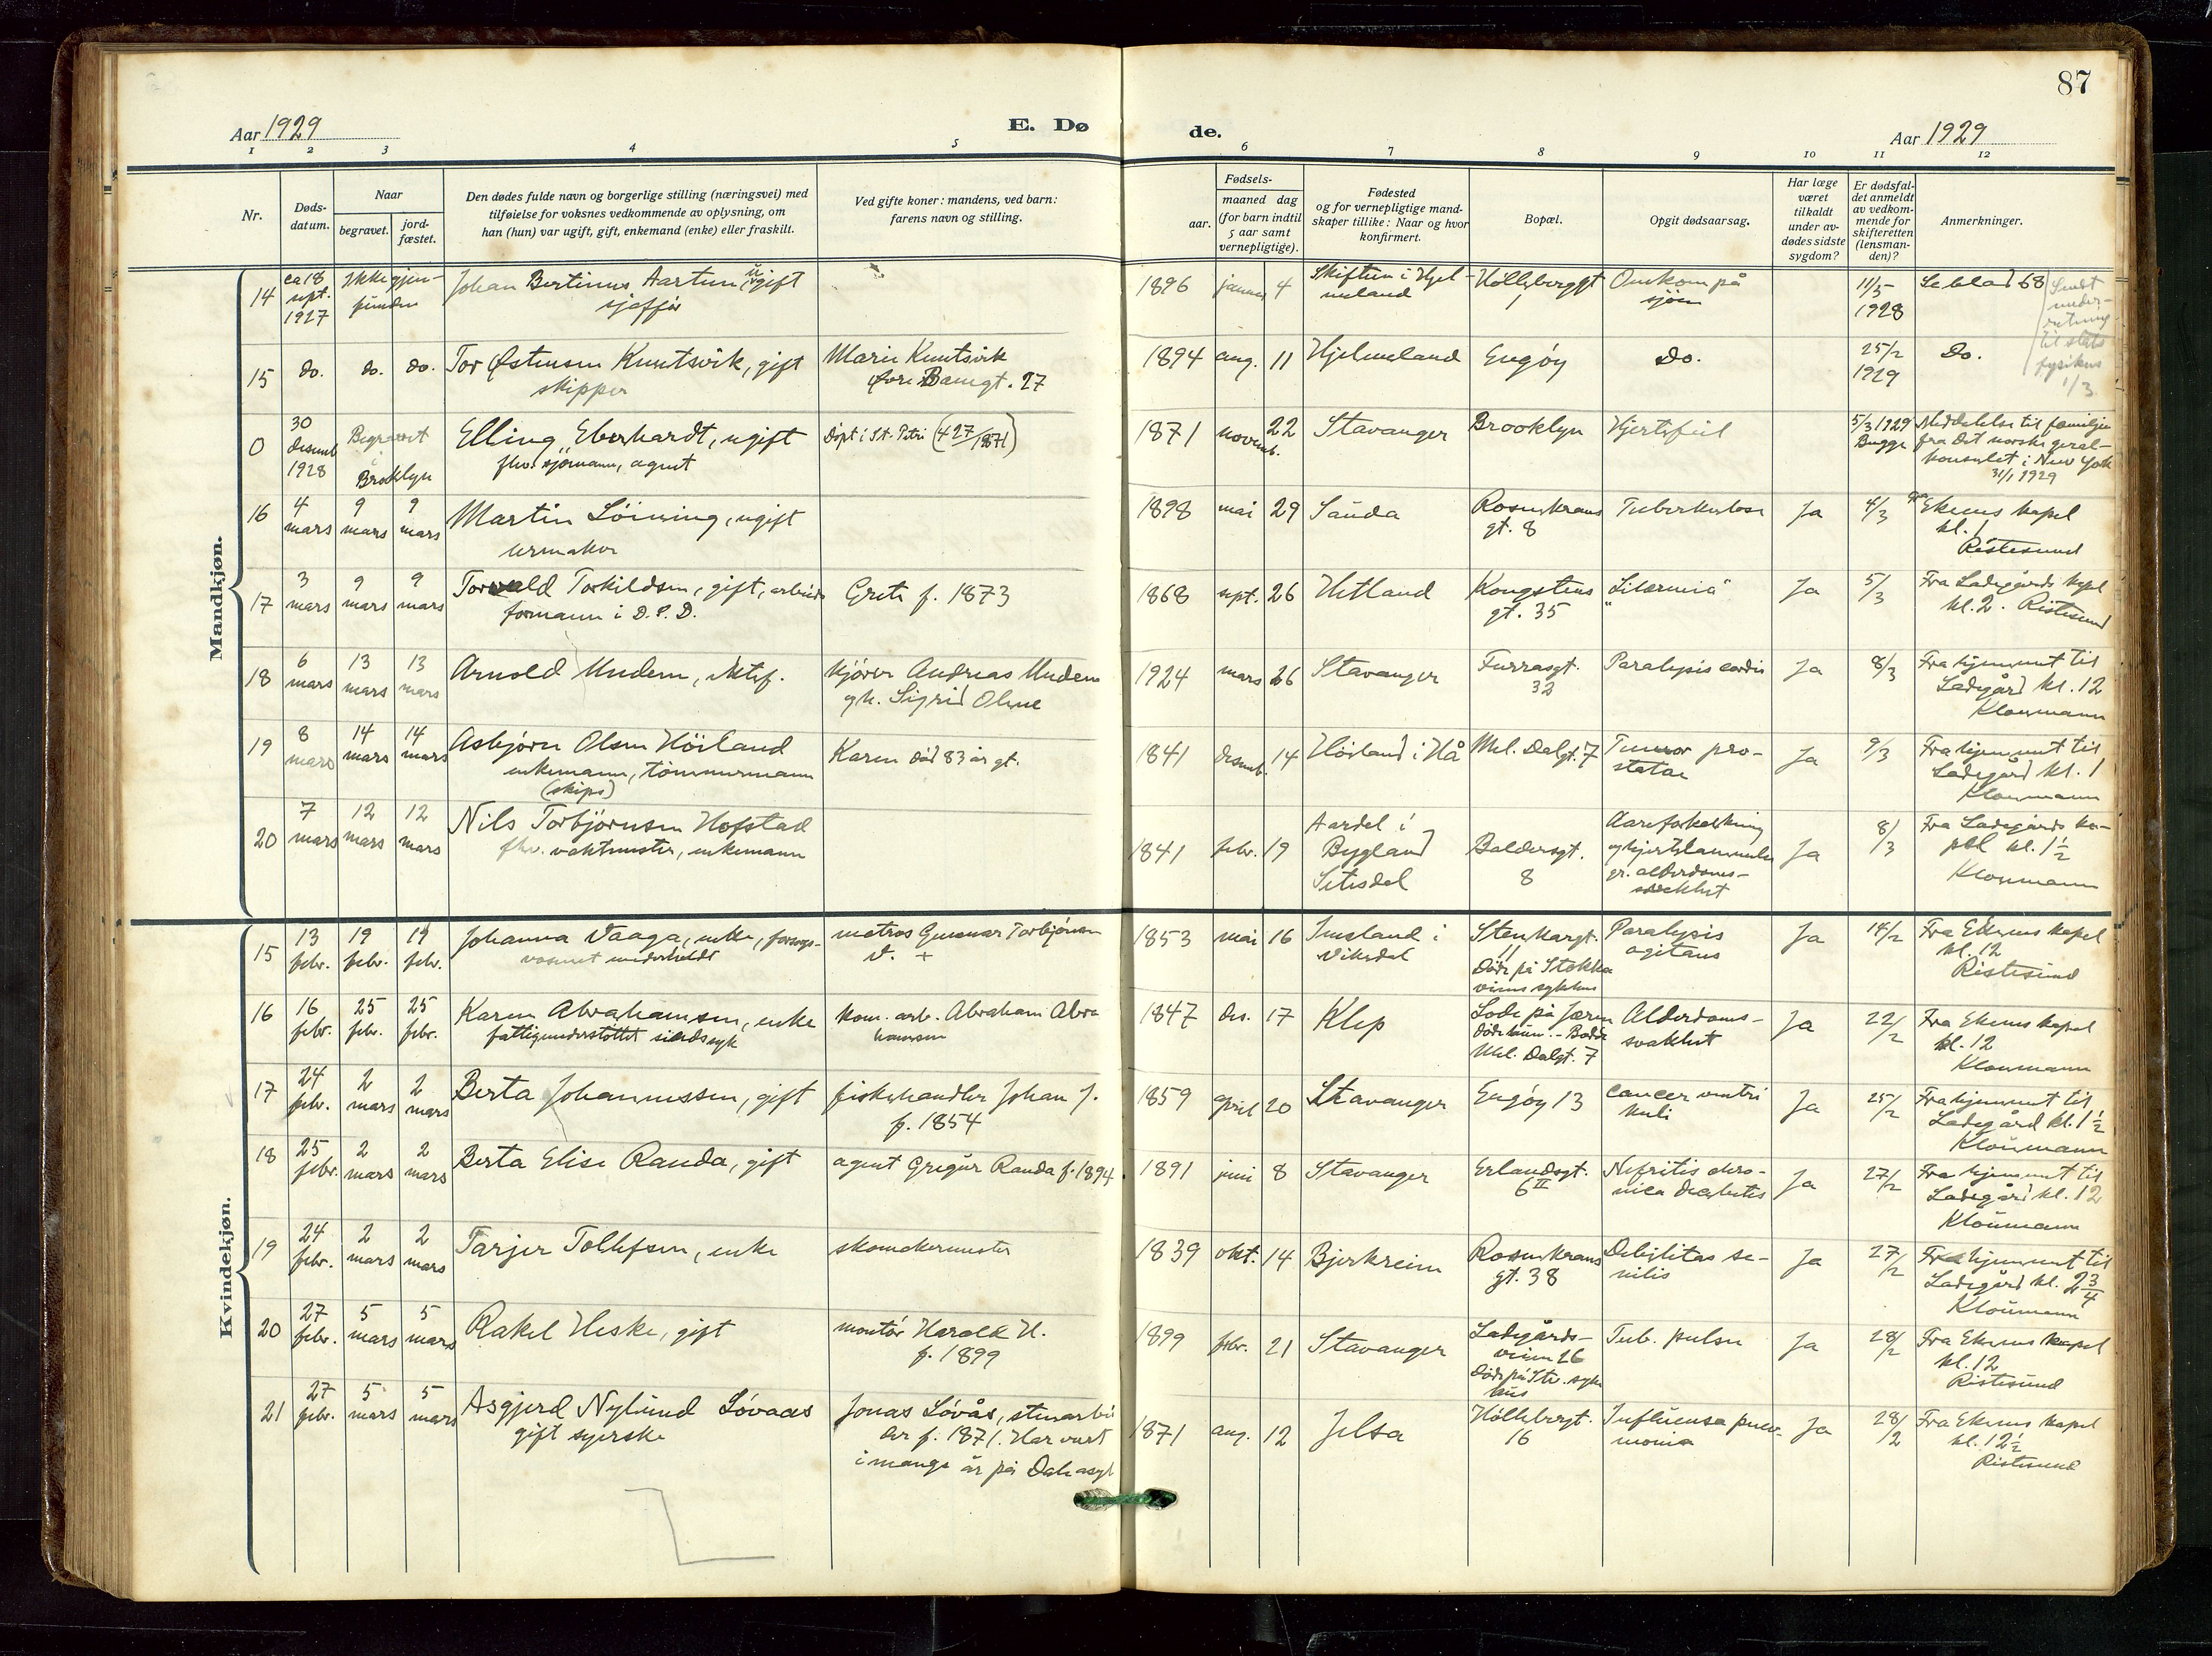 87
Aar 1929
E. Dø
de.
Aar 1929
1 2 3 4 5 6 7 8 9 10 11 12
Nr.
Døds-
datum.
Naar
begravet.
jord-
fæstet.
Den dødes fulde navn og borgerlige stilling (næringsvei) med
tilføielse for voksnes vedkommende av oplysning, om
han (hun) var ugift, gift, enkemand (enke) eller fraskilt.
Ved gifte koner: mandens, ved barn:
farens navn og stilling.
Fødsels-
aar.
maaned dag
(for barn indtil
5 aar samt
vernepligtige).
Fødested
og for vernepligtige mand-
skaper tillike: Naar og hvor
konfirmert.
Bopæl.
Opgit dødsaarsag.
Har læge
været
tilkaldt
under av-
dødes sidste
sygdom?
Er dødsfal-
det anmeldt
av vedkom-
mende for
skifteretten
(lensman-
den)?
Anmerkninger.
Mandkjøn.
14
ca 18
sept.
1927
Ikke gjen-
funden
Johan Bertinus Aartun ugift
sjøffør
1896 januar 4
Skiftun i Hjel-
meland
1
Omkom på
sjøen
11/5
1928
Se blad 68
Sendt
under-
retning
til stats
fysikus
1/3
15
do. do. do.
Tor Østensen Knutsvik, gift
skipper
Marie Knutsvik
øvre Banegt. 27
1894 aug. 11
Hjelmeland
Engøy
Do.
25/2
1929
Do.
0
30
desemb
1928
Begravet
i
Brooklyn
Elling Eberhardt, ugift
fhv. sjømann, agent
Døpt i St. Petri (427/1871)
1871 novemb. 22
Stavanger
Brooklyn
Hjertefeil
5/3 1929
Bugge
Meddelelse til familien
fra det norske general-
konsulat i New York
31/1 1929
16
4
mars
9
mars
9
mars
Martin Löining, ugift
urmaker
1898 mai 29
Sauda
Rosenkrans
gt. 8
Tuberkulose
Ja
4/3
Ekenes kapel
kl. 1
Ristesund
17
3
mars
9
mars
9
mars
Torvald Torkildsen, gift, arbeids
formann i D. S. D.
Grete f. 1873
1868 sept. 26
Hetland
Kongstens
gt. 35
Ja
5/3
Fra Ladegårds kapel
kl. 2. Ristesund
18
6
mars
13
mars
13
mars
Arnold Undem, ektef.
kjører Andreas Undem
gh. Sigrid Olene
1924 mars 26
Stavanger
Furrasgt.
32
Paralysis cordis
Ja
8/3
Fra hjemmet til
Ladegård kl. 12
Kloumann
19
8
mars
14
mars
14
mars
Asbjørn Olsen Höiland
enkemann, tømmermann
(skips)
Karen död 83 år gt.
1841 desemb. 14
Höiland i Hå
Mel. Dalgt. 7
Tumor pro-
statae
Ja
9/3
Fra hjemmet til
Ladegård kl. 1
Kloumann
20
7
mars
12
mars
12
mars
Nils Torbjørnsen Hofstad
fhv. vaktmester, enkemann
1841 febr. 19
Aardal i
Bygland
Setesdal
Baldersgt.
8
Aareforkalkning
og hjerteklammelse
gr. alderdoms-
svakhet
Ja
8/3
Fra Ladegårds ka-
pel kl. 1½
Kloumann
Kvindekjøn.
15
13
febr.
19
febr.
19
febr.
Johanna Vaaga, enke, forsorgs-
vesenet underholdt
matros Gunnar Torbjörnsen
V. +
1853 mai 16
Imsland i
Vikedal
Stenkargt.
11
Döde på Stokka
veiens sykehus
Paralysis
agitans
Ja
14/2
Fra Ekenes kapel
kl. 12
Ristesund
16
16
febr.
25
febr.
25
febr.
Karen Abrahamsen, enke
fattigunderstöttet sindssyk
kom. arb. Abraham Abra
hamsen
1847 des. 17
Klep
Lode på Jæren
Mel. Dalgt. 7
Alderdoms-
svakhet
Ja
22/2
Fra Ekenes kapel
kl. 12
Kloumann
17
24
febr.
2
mars
2
mars
Berta Johannessen, gift
fiskehandler Johan J.
f. 1854
1859 april 20
Stavanger
Engöy 13
Cancer ventri
kuli
Ja
25/2
Fra hjemmet til
Ladegård kl. 1½
Kloumann
18
25
febr.
2
mars
2
mars
Berta Elise Randa, gift
agent Gregar Randa f. 1894.
1891 juni 8
Stavanger
Erlandsgt.
6 II
Nefritis chro-
nica Diabetes
Ja
27/2
Fra hjemmet til
Ladegård kl. 12
Kloumann
19
24
febr.
2
mars
2
mars
Tarjer Tollefsen, enke
skomakermester
1839 okt. 14
Bjerkreim
Rosenkrans
gt. 38
Debilitas se-
nilis
Ja
27/2
Fra hjemmet til
Ladegård kl. 2¾
Kloumann
20
27
febr.
5
mars
5
mars
Rakel Heske, gift
montör Harald H.
f. 1899
1899 febr. 21
Stavanger
Ladegårds-
veien 26
Döde på Stv. syke
hus
Tub. pulm
Ja
28/2
Fra Ekenes kapel
kl. 12
Ristesund
21
27
febr.
5
mars
5
mars
Asgjerd Nylund Lövaas
gift syerske
Jonas Lövås, stenarbei
der f. 1871. Har vært
i mange år på Dale asyl
1871 aug. 12
Jelsa
16
Influensa pneu-
monia
Ja
28/2
Fra Ekenes kapel
kl. 12½
Ristesund